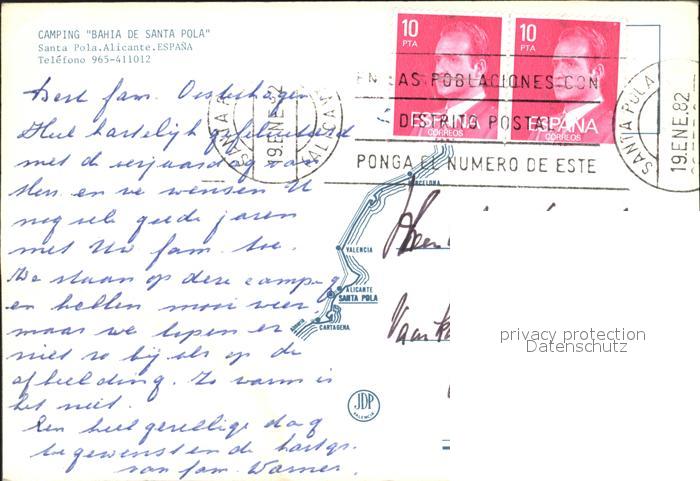 CAMPING "BAHIA DE SANTA POLA"
Santa Pola.Alicante.ESPAÑA
Teléfono 965-411012
10
PTA
10
PTA
ESPAÑA
CORREOS
ESPAÑA
CORREOS
EN LAS POBLACIONES CON
DESTRITO POSTAL
PONGA EL NUMERO DE ESTE
19.ENE.82
SANTA POLA
19.ENE.82
Best fam. Oosterhagen
Heel hartelijk gefeliciteerd
met de verjaardag van
en we wensen U
nog vele goede jaren
met Uw fam. toe.
We staan op deze camping
en hebben mooi weer
maar we lopen er
niet zo bij als op de
afbeelding. Zo warm is
het niet.
Een heel gezellige dag
toegewenst en de hartgr.
van fam. Warner.
BARCELONA
VALENCIA
ALICANTE
SANTA POLA
CARTAGENA
JDP
VALENCIA
privacy protection
Datenschutz